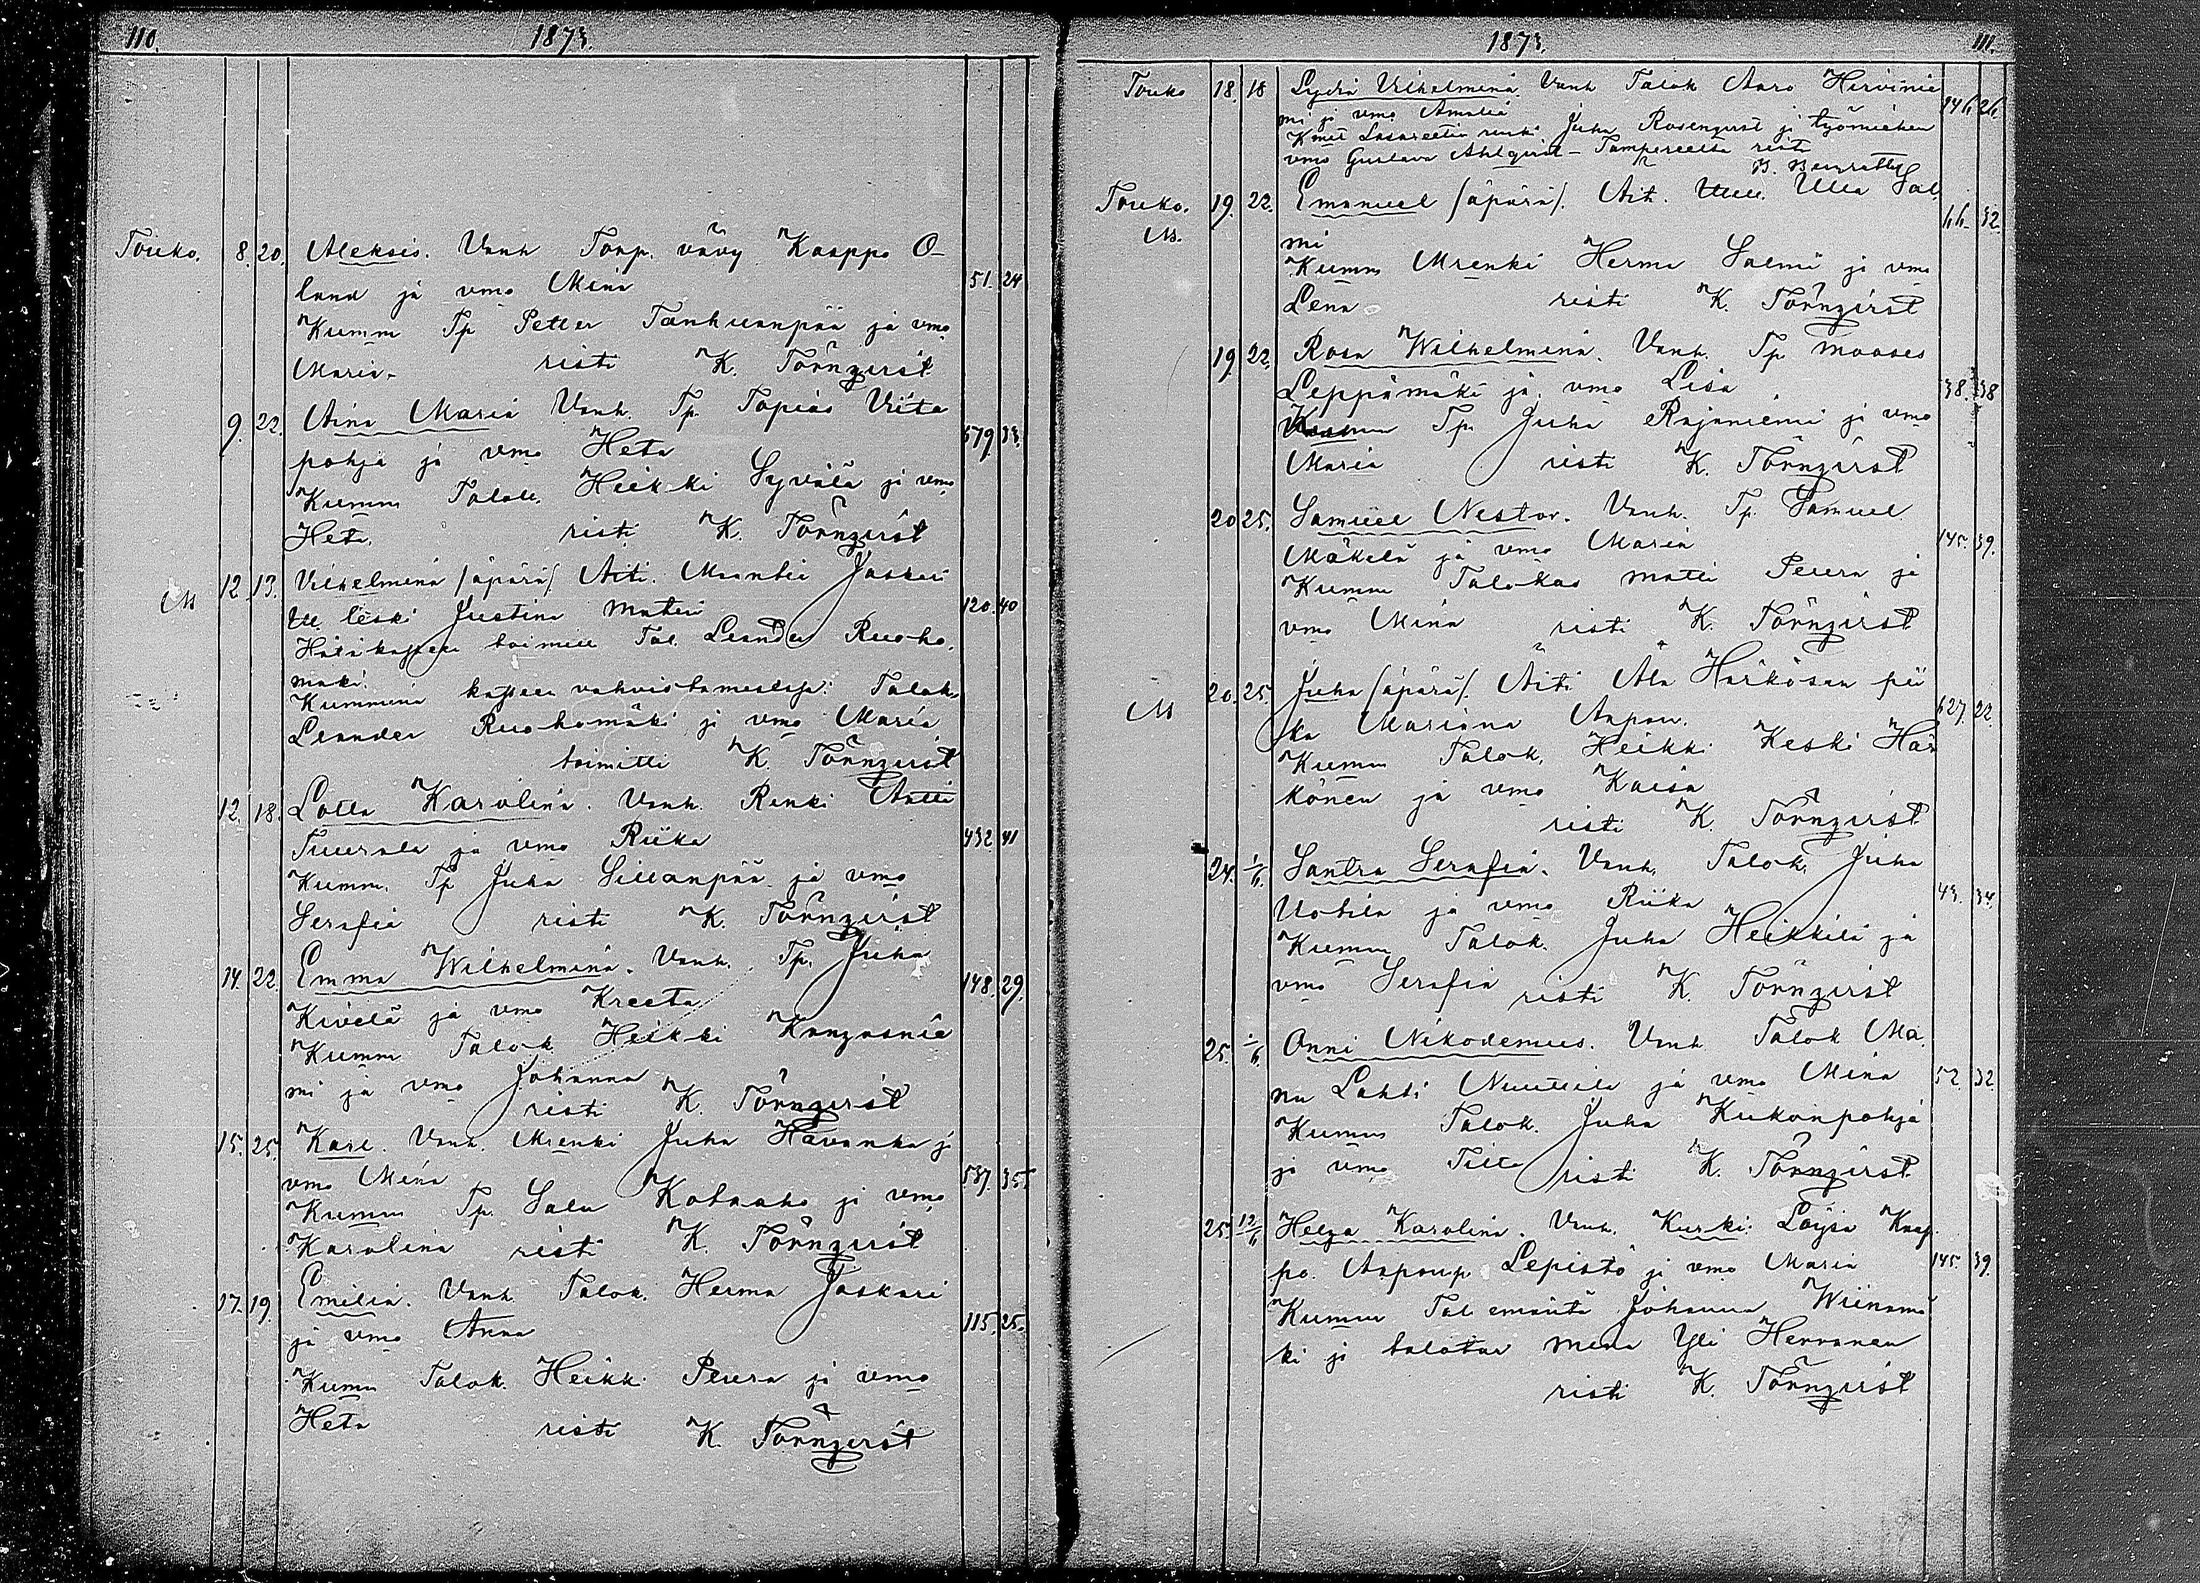 110. 1873.
Touko. 8. 20. Aleksis. Vanh Torp. vävy Kaappo O-
land ja vmo Mina 51. 24
Kumm Tp Petter Tanhuanpää ja vmo
Maria- risti K. Törnqvist
9. 22. Aina Maria Vanh. Tp. Topias Viita
pohja ja vmo Heta 579. 33.
Kumm Talok. Heikki Syvälä ja vmo
Heta. risti K. Törnqvist
M 12. 13. Vilhelmina /äpärä/ Äiti. Jaskari
leski Justina 120. 40
Hätäkasteen toimitti Tal. Leander Ruoho.
mäki.
Kummina kasteen vahvistamisessa: Talok
Leander Ruohomäki ja vmo Maria
toimitti K. Törnqvist
12. 18. Lotta Karolina. Vanh. Renki Antti
Tuurala ja vmo Riika 432 41
Kumm. Tp Juha Sillanpää ja vmo
Serafia risti K. Törnqvist
14. 22. Emma Wilhelmina. Vanh. Tp. Juha
Kivelä ja vmo Kreeta 148. 29.
Kumm Talok Heikki Kangasnie
mi ja vmo Johanna
risti K. Törnqvist
15. 25. Karl. Vanh. Mrenki Juha Havanka j
vmo Mina 537. 35.
Kumm Tp. Salu ja vmo
Karolina risti K. Törnqvist
17. 19. Emilia. Vanh Talok. Herma Jaskari
ja vmo Anna 115. 25.
Kumm Talok. Heikki Peura ja vmo
Heta risti K. Törnqvist
1873. 111.
Touko 18. 18 Lydia Vilhelmina. Vanh Talok Aaro Hirvinie
mi ja vmo Amalia 146. 26.
Kmit Lasareetin renki Juha Rosenqvist ja työmiehen
vmo Gustava Ahlqvist - Tampereelta risti
Touko. 19. 22. Emanuel /äpärä/. Äit. Ulla Sal
M. mi 66. 32.
Kumm Mrenki Herma Salmi ja vmo
Lena risti K. Törnqvist
19. 22. Rosa Wilhelmina. Vanh. Tp Mooses
Leppämäki ja vmo Lisa 38. 38
Kumm Tp. Juha Rajaniemi ja vmo
Maria risti K. Törnqvist
20 25. Samuel Nestor. Vanh. Tp. Samuel
Mäkelä ja vmo Maria 145. 39.
Kumm Talokas Matti Peura ja
vmo Mina risti K. Törnqvist
M 20. 25. Juha /äpärä/. Äiti Ala Härkösen pii
ka Mariana Aapon. 627. 22
Kumm Talok. Heikki Keski Här
könen ja vmo Kaisa
risti K. Törnqvist
24. 1/6. Santra Serafia. Vanh. Talok. Juha
Uotila ja vmo Riika 43. 34.
Kumm Talok. Juha Heikkilä ja
vmo Serafia risti K. Törnqvist
25. 1/6 Onni Nikodemus. Vanh Talok Ma.
nu Lahti ja vmo Mina 52. 32.
Kumm Talok. Juha Kiikonpohja
ja vmo risti K. Törnqvist
25. 12/6 Helga Karolina. Vanh. Kurki.
po. Aaponp. Lepistö ja vmo Maria 145. 39.
Kumm Tal emäntä Johanna Wiinamä
ki ja talotar Mina Yli Hernanen
risti K. Törnqvist